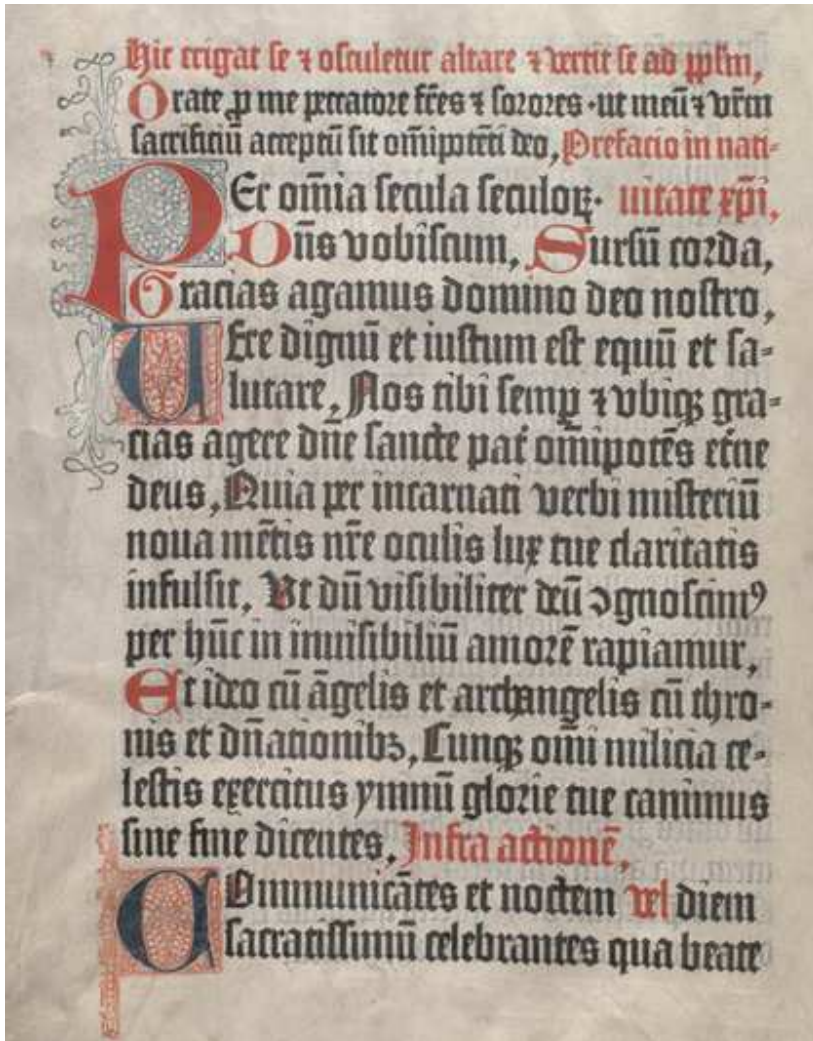 Hic erigat se ⁊ osculetur altare ⁊ vertit se ad ppl̄m,
Orate ꝓ me peccatore fr̄es ⁊ sorores · ut meū ⁊ vr̄m
sacrificiū acceptū sit om̄ipotēti deo, Prefacio in nati-
PEr om̄ia secula seculoꝝ· uitate xp̄i,
Dn̄s vobiscum, Sursū corda,
Gracias agamus domino deo nostro,
UEre dignū et iustum est equū et sa-
lutare, Nos tibi semꝑ ⁊ vbiqꝫ gra-
cias agere dn̄e sancte pat̄ om̄ipotēs et̄ne
deus, Quia per incarnati verbi misteriū
noua mētis nr̄e oculis lux tue claritatis
infulsit, Vt dū visibiliter deū ꝯgnoscimꝰ
per hūc in inuisibiliū amorē rapiamur,
Et ideo cū āgelis et archangelis cū thro-
nis et dn̄ationibꝫ, Cunqꝫ om̄i milicia ce-
lestis exercitus ymnū glorie tue canimus
sine fine dicentes, Infra actionē,
COmmunicātes et noctem vel diem
sacratissimū celebrantes qua beate